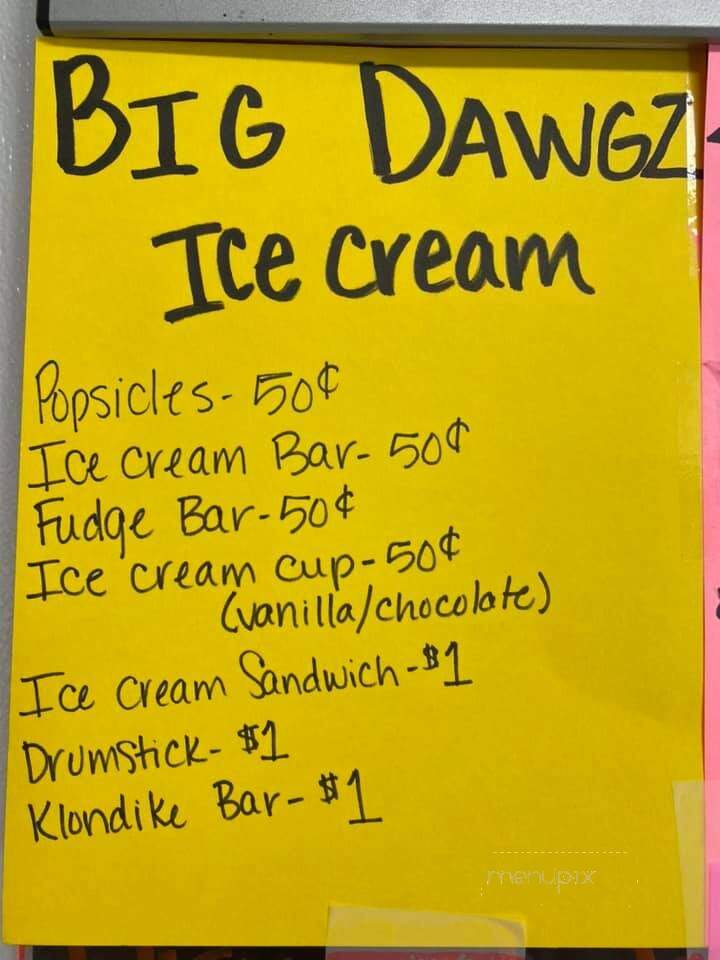 BIG DAWGZ
Ice Cream
Popsicles- 50¢
Ice Cream Bar- 50¢
Fudge Bar-50¢
Ice cream cup-50¢
(vanilla/chocolate)
Ice Cream Sandwich-$1
Drumstick- $1
Klondike Bar- $1
menupix